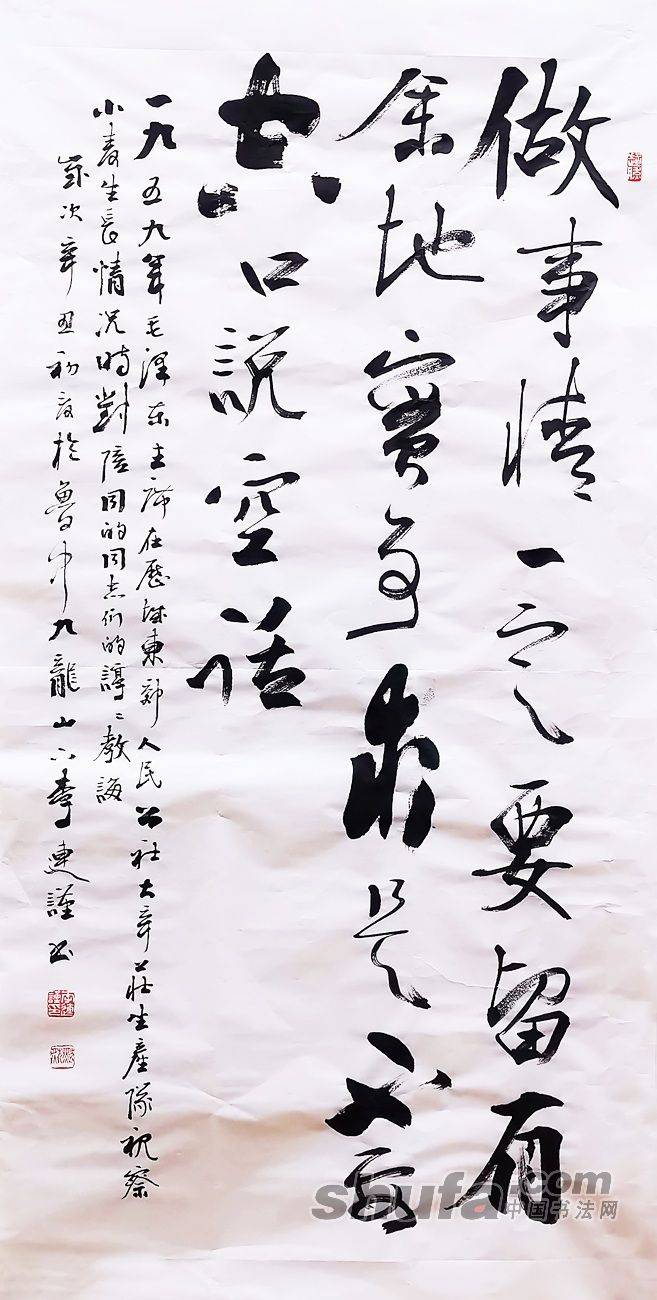 做事情一定要留有
余地實事求是不要
口說空话
一九五九年毛澤东主席在歷城東郊人民公社大辛莊生產隊視察
小麦生長情况時對陪同的同志们的諄〻教誨
歲次辛丑初夏於魯中九龍山下李連謹书
shufa.com
中国书法网